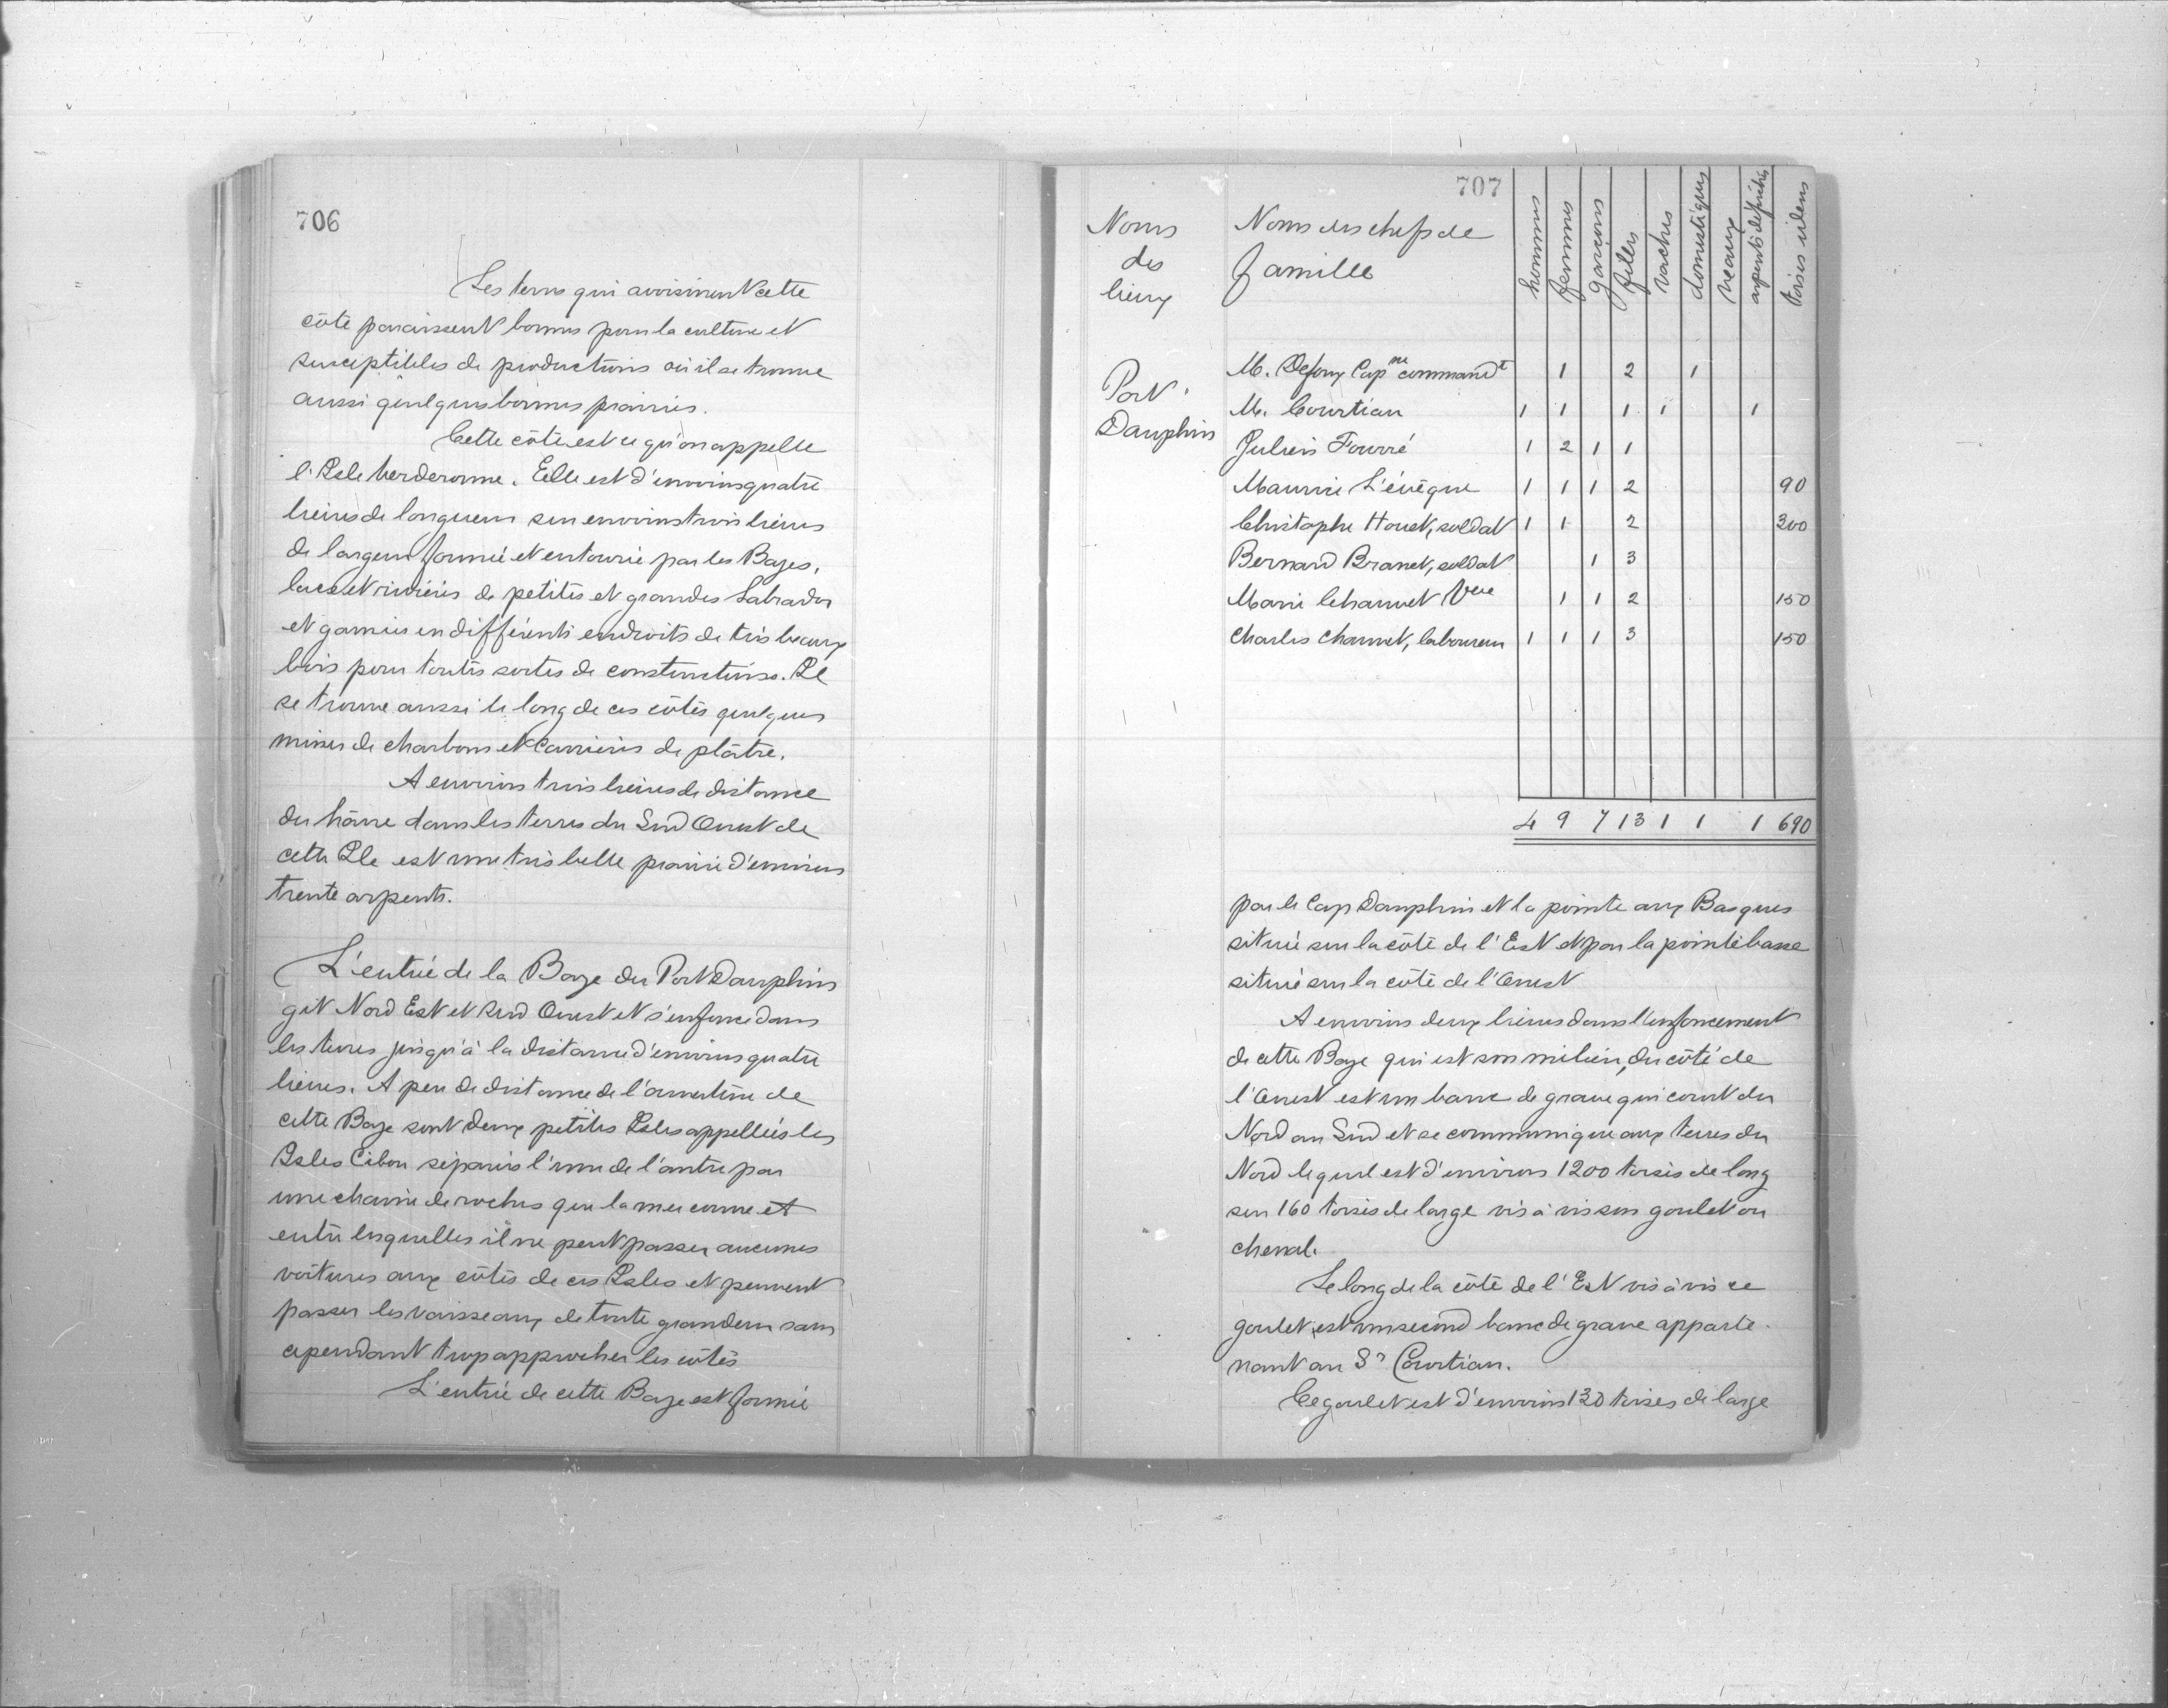 706
Les terres qui avoisinent cette
côte paraissent bonnes pour la culture et
susceptibles de productions où il se trouve
aussi quelques bonnes prairies.
Cette côte est ce qu'on appelle
l'Isle Verderonne. Elle est d'environs quatre
lieues de longueur sur environs trois lieues
de largeur formée et entourée par les Bayes,
lacs et rivières de petites et grandes Labrador
et garnies en différents endroits de très beaux
bois pour toutes sortes de constructions. Il
se trouve aussi le long de ces côtes quelques
mines de charbons et Carrières de plâtre.
A environs trois lieues de distance
du hâvre dans les terres du Sud Ouest de
cette Ile est une très belle prairie d'environs
trente arpents.
L'entrée de la Baye du Port Dauphin
git Nord Est et Sud Ouest et s'enfonce dans
les terres jusqu'à la distance d'environs quatre
lieues. A peu de distance de l'ouverture de
cette Baye sont deux petites Isles appellées les
Isles Cibou séparées l'une de l'autre par
une chaine de roches que la mer couvre et
entre lesquelles il ne peut passer aucunes
voitures aux côtés de ces Isles et peuvent
passer les vaisseaux de toute grandeur sans
cependant trop approcher les côtes
L'entrée de cette Baye est formée
707
Noms des lieux
Noms des chefs de famille
hommes femmes garçons filles vaches domestiques veaux arpents défrichés toises idem
Port Dauphin
M. Cap ne command t 1 2 1
M. Courtiau 1 1 1 1 1
Julien Fourré 1 2 1 1
Maurice L'évêque 1 1 1 2 90
Christophe Houet, soldat 1 1 2 300
Bernard Branet, soldat 1 3
Marie Chauvet Vve 1 1 2 150
Charles Chauvet, laboureur 1 1 1 3 150
4 9 7 13 1 1 1 690
par le Cap Dauphin et la pointe aux Basques
située sur la côte de l'Est et par la pointe basse
située sur la côte de l'Ouest
A environs deux lieues dans l'enfoncement
de cette Baye qui est son milieu, du côté de
l'Ouest est un banc de grave qui court du
Nord au Sud et se communique aux terres du
Nord lequel est d'environs 1200 toises de long
sur 160 toises de large vis à vis son goulet ou
chenal.
Le long de la côte de l'Est vis à vis ce
goulet, est un second banc de grave apparte-
nant au Sr Courtiau.
Ce goulet est d'environs 130 toises de large